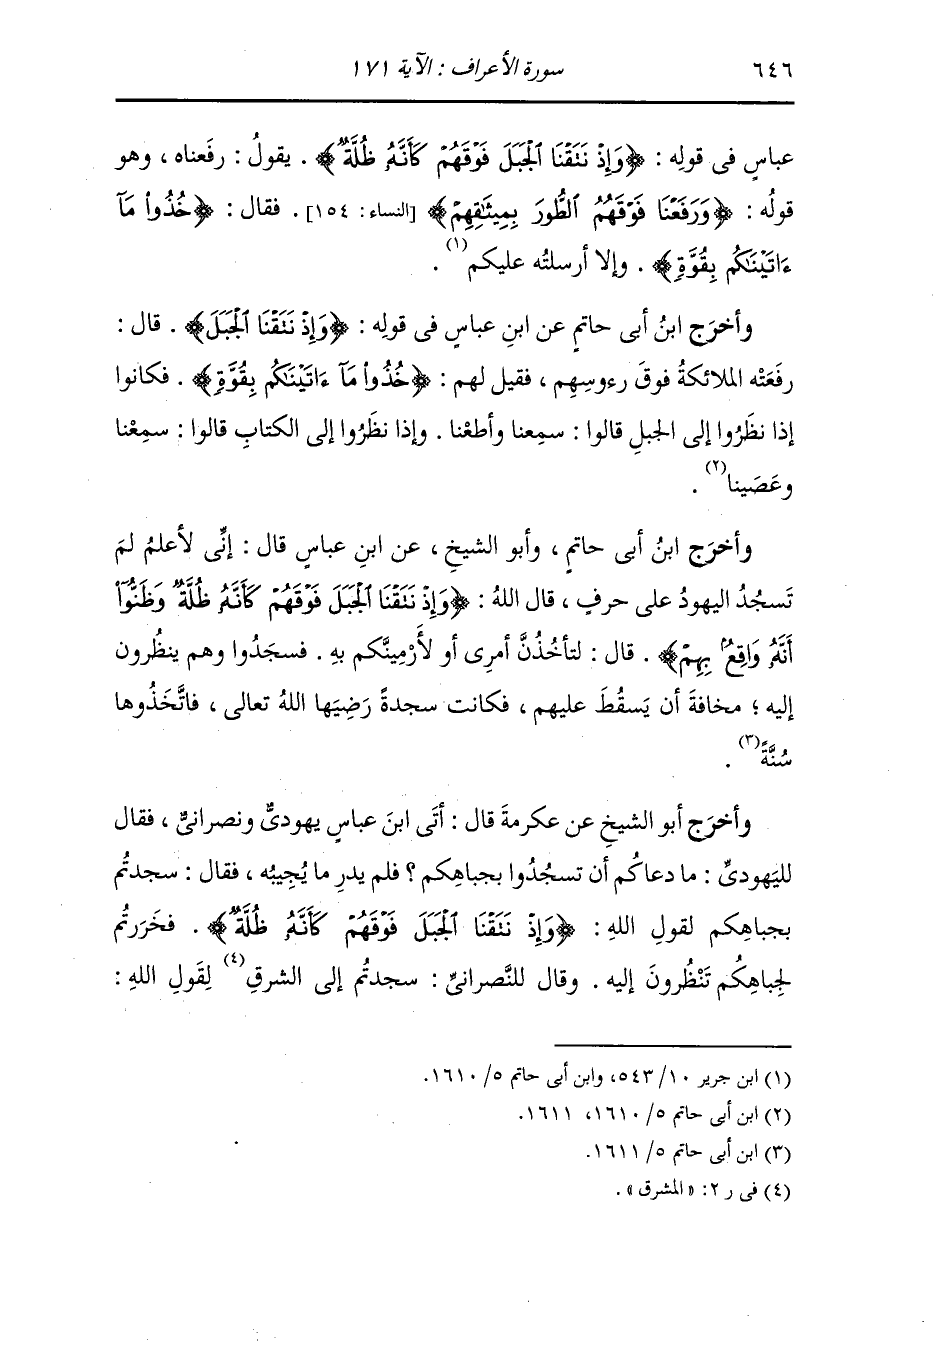 ٦٤٦ سورة الأعراف : الآية ١٧١
عباسٍ فى قولِه : ﴿وَإِذْ نَتَقْنَا ٱلْجَبَلَ فَوْقَهُمْ كَأَنَّهُۥ ظُلَّةٌ﴾ . يقولُ : رفَعناه ، وهو
قولُه : ﴿وَرَفَعْنَا فَوْقَهُمُ ٱلطُّورَ بِمِيثَٰقِهِمْ﴾ [النساء: ١٥٤] . فقال : ﴿خُذُوا۟ مَآ
ءَاتَيْنَٰكُم بِقُوَّةٍ﴾ . وإلا أرسلتُه عليكم(١) .
وأخرَج ابنُ أبى حاتمٍ عن ابنِ عباسٍ فى قولِه : ﴿وَإِذْ نَتَقْنَا ٱلْجَبَلَ﴾ . قال :
رفَعَتْه الملائكةُ فوقَ رءوسِهِم ، فقيل لهم : ﴿خُذُوا۟ مَآ ءَاتَيْنَٰكُم بِقُوَّةٍ﴾ . فكانوا
إذا نظَرُوا إلى الجبلِ قالوا : سمِعنا وأطعْنا . وإذا نظَرُوا إلى الكتابِ قالوا : سمِعْنا
وعَصَينا(٢) .
وأخرَج ابنُ أبى حاتمٍ ، وأبو الشيخِ ، عن ابنِ عباسٍ قال : إنِّى لأعلمُ لمَ
تَسجُدُ اليهودُ على حرفٍ ، قال اللهُ : ﴿وَإِذْ نَتَقْنَا ٱلْجَبَلَ فَوْقَهُمْ كَأَنَّهُۥ ظُلَّةٌ وَظَنُّوٓا۟
أَنَّهُۥ وَاقِعٌۢ بِهِمْ﴾ . قال : لتأخُذُنَّ أمرِى أو لأَرْمِينَّكم بهِ . فسجَدُوا وهم ينظُرون
إليه ؛ مخافةَ أن يَسقُطَ عليهم ، فكانت سجدةً رَضِيَها اللهُ تعالى ، فاتَّخَذُوها
سُنَّةً(٣) .
وأخرَج أبو الشيخِ عن عكرمةَ قال : أتَى ابنَ عباسٍ يهودىٌّ ونصرانىٌّ ، فقال
لليَهودىِّ : ما دعاكُم أن تسجُدُوا بجباهِكم ؟ فلم يدرِ ما يُجِيبُه ، فقال : سجدتُم
بجباهِكم لقولِ اللهِ : ﴿وَإِذْ نَتَقْنَا ٱلْجَبَلَ فَوْقَهُمْ كَأَنَّهُۥ ظُلَّةٌ﴾ . فخَرَرتُم
لجِباهِكُم تَنْظُرونَ إليه . وقال للنَّصرانىِّ : سجدتُم إلى الشرقِ(٤) لِقَولِ اللهِ :
(١) ابن جرير ١٠/ ٥٤٣، وابن أبى حاتم ٥/ ١٦١٠.
(٢) ابن أبى حاتم ٥/ ١٦١٠، ١٦١١.
(٣) ابن أبى حاتم ٥/ ١٦١١.
(٤) فى ر ٢: «المشرق» .